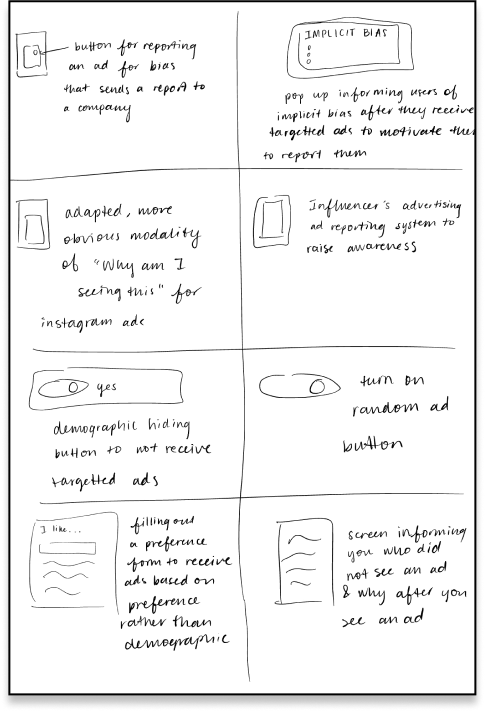 button for reporting
an ad for bias
that sends a report to
a company
IMPLICIT BIAS
pop up informing users of
implicit bias after they receive
targetted ads to motivate them
to report them
adapted, more
obvious modality
of "Why am I
seeing this" for
instagram ads
Influencer's advertising
ad reporting system to
raise awareness
yes
demographic hiding
button to not receive
targetted ads
turn on
random ad
button
I like...
filling out
a preference
form to receive
ads based on
preference
rather than
demographic
screen informing
you who did
not see an ad
& why after you
see an ad